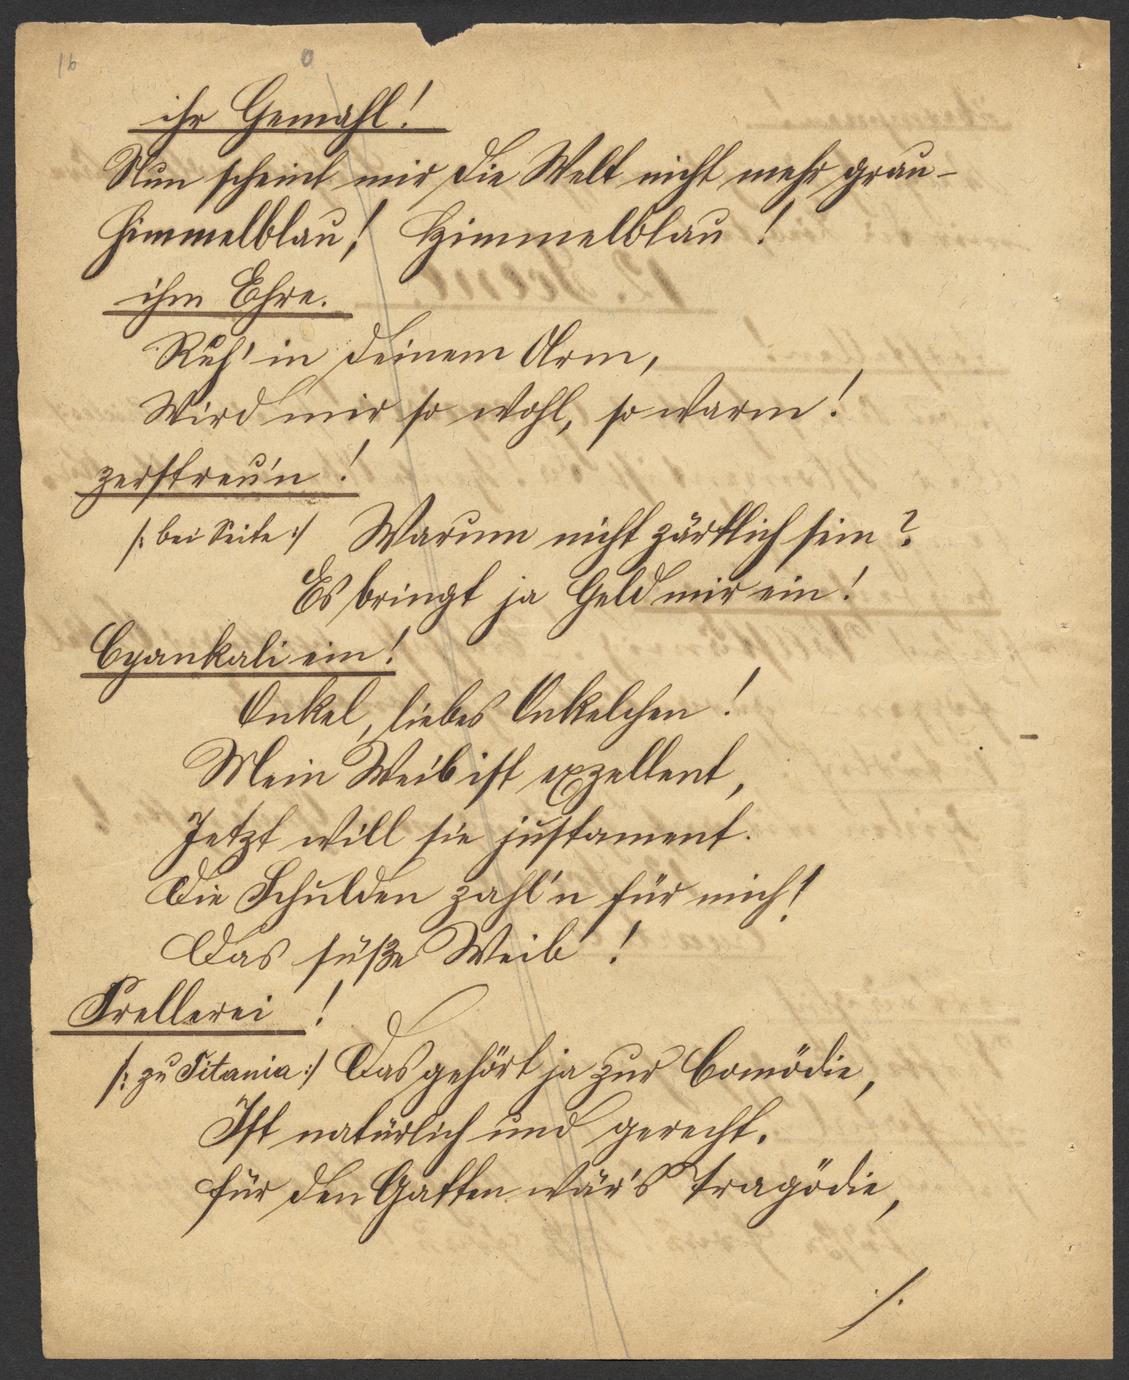 16
0
ihr Gemahl!
Nun scheint mir die Welt nicht mehr grau-
Himmelblau! Himmelblau!
ihm Ehre.
Ruh' in deinem Arm,
Wird mir so wohl, so warm!
zerstreu'n!
/: bei Seite :/ Warum nicht zärtlich sein?
Es bringt ja Geld mir ein!
Cyankali ein!
Onkel, liebes Onkelchen!
Mein Weib ist exzellent,
Jetzt will sie justament.
Die Schulden zahl'n für mich!
Das süße Weib!
Trellerei!
/: zu Titania :/ Das gehört ja zur Comödie,
Ist natürlich und gerecht.
Für den Gatten wär's Tragödie,
./.